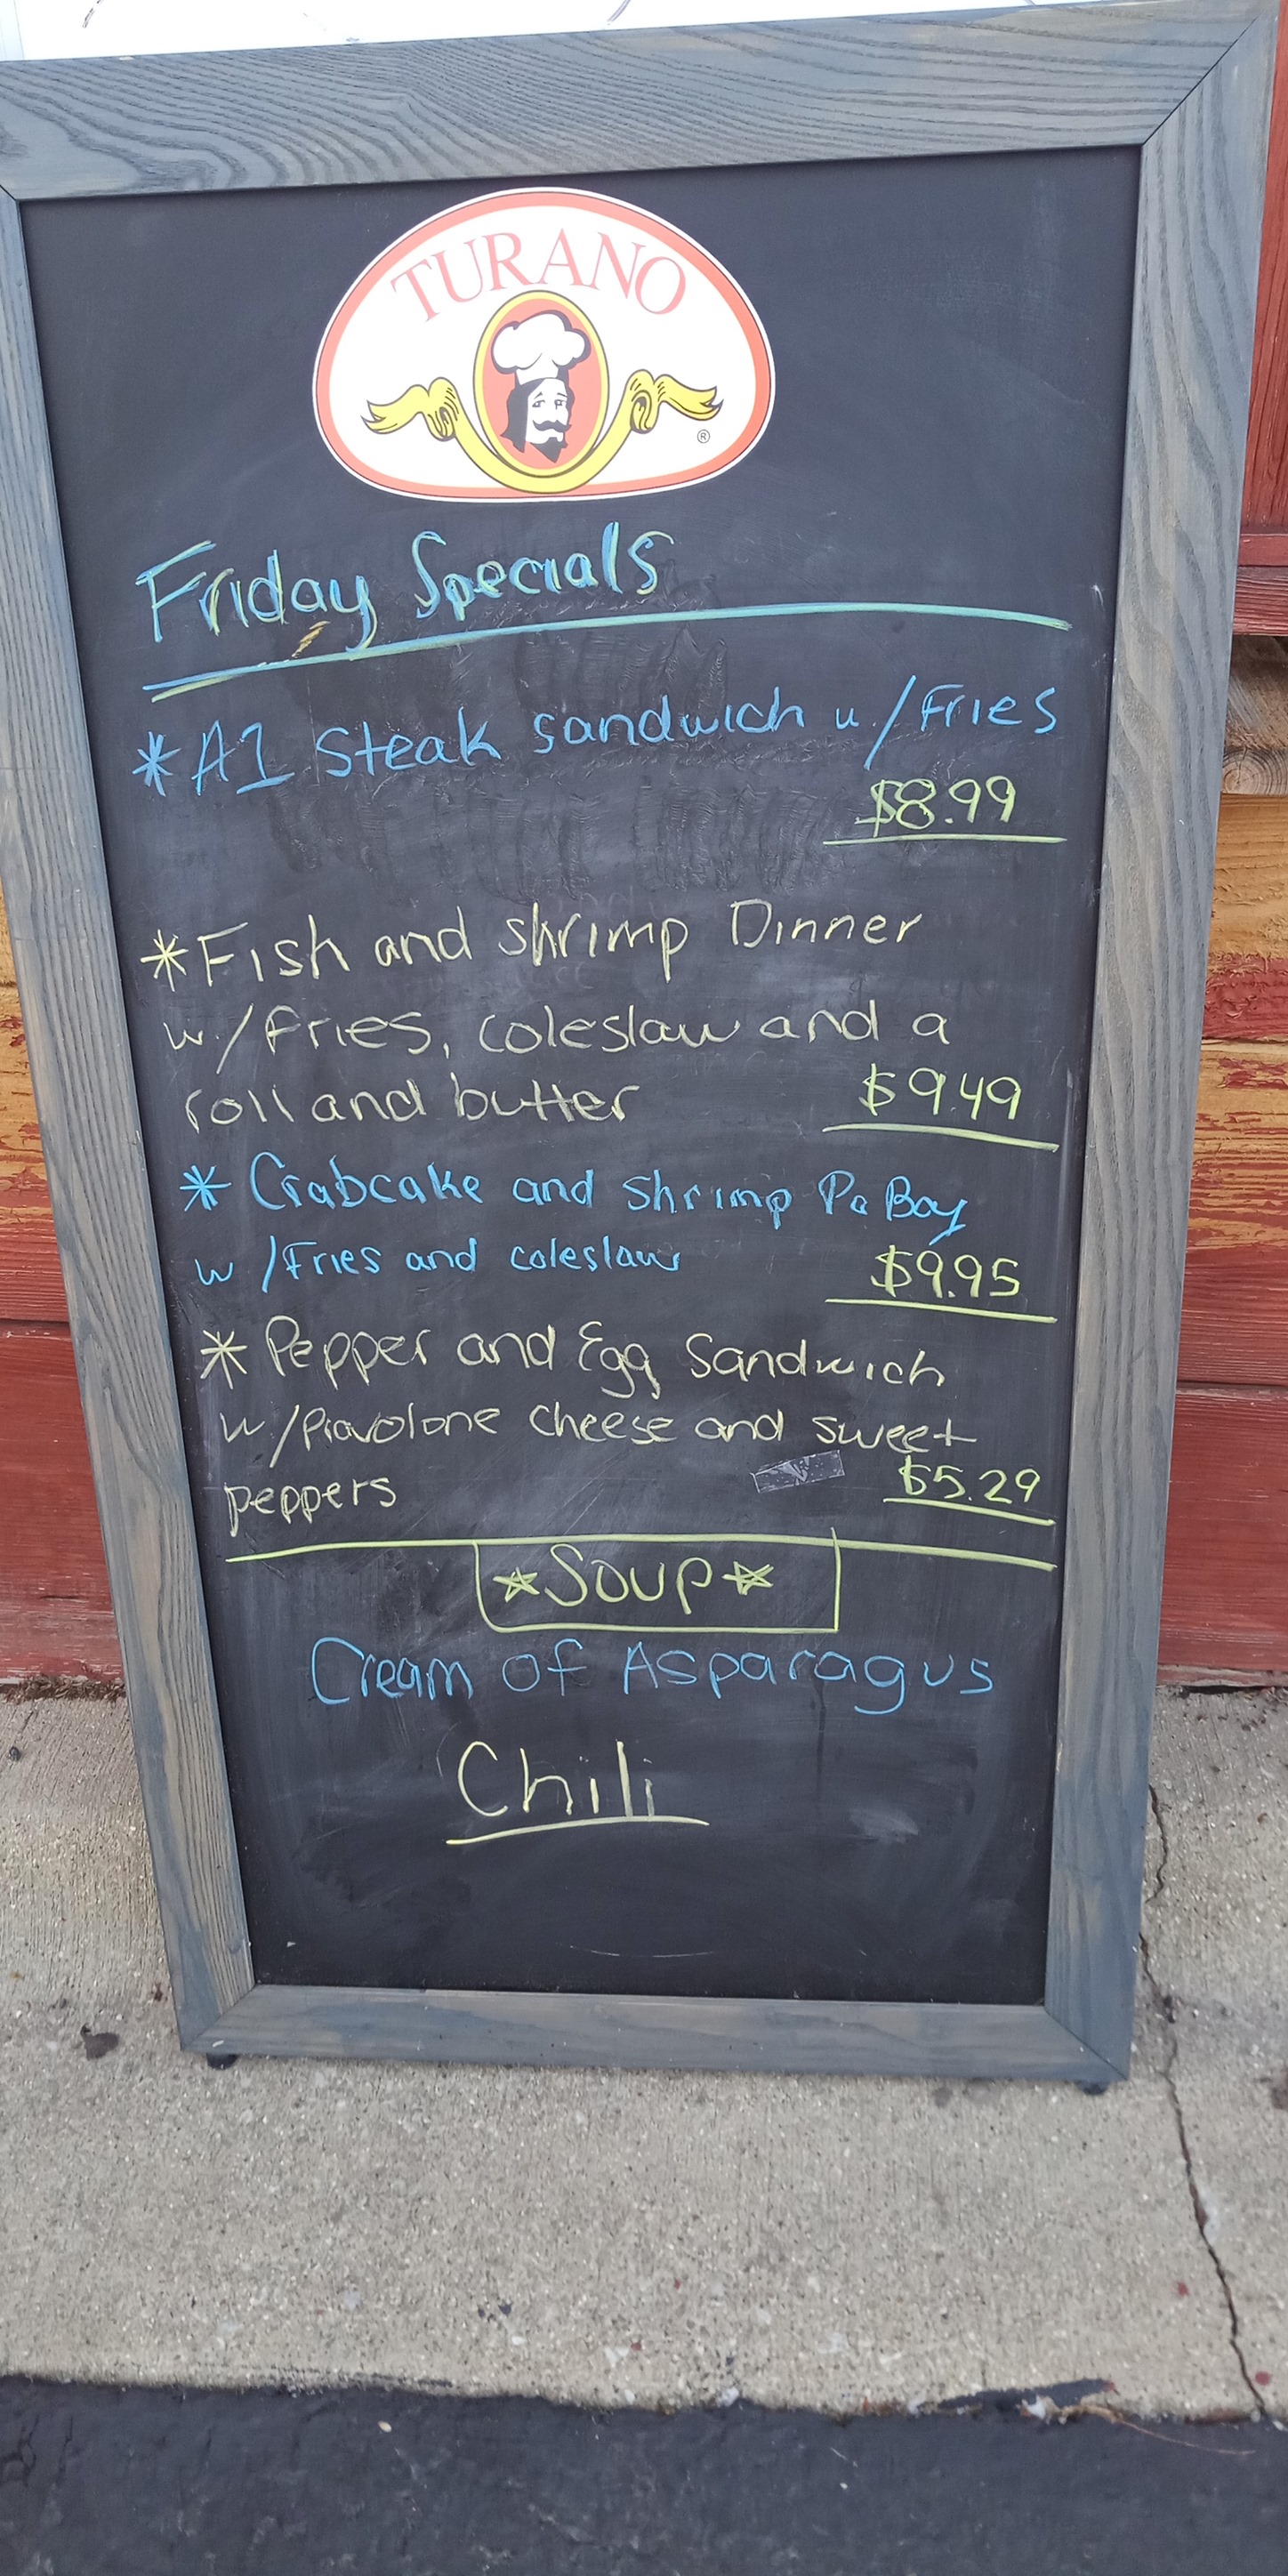 TURANO
®
Friday Specials
*A1 Steak sandwich w/Fries
$8.99
*Fish and shrimp Dinner
w/fries, coleslaw and a
roll and butter $9.49
* Crabcake and shrimp Po Boy
w/Fries and coleslaw $9.95
* Pepper and Egg Sandwich
w/Provolone cheese and sweet
peppers $5.29
*Soup*
Cream of Asparagus
Chili